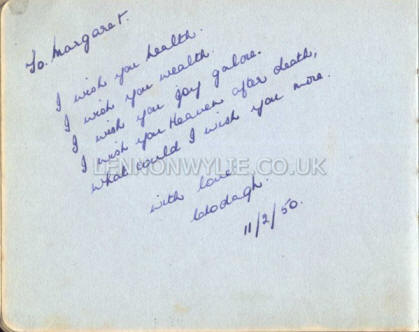 To Margaret.
I wish you health.
I wish you wealth.
I wish you joy galore.
I wish you Heaven after death,
what could I wish you more.
LENNONWYLIE.CO.UK
with love
Clodagh.
11/2/50.